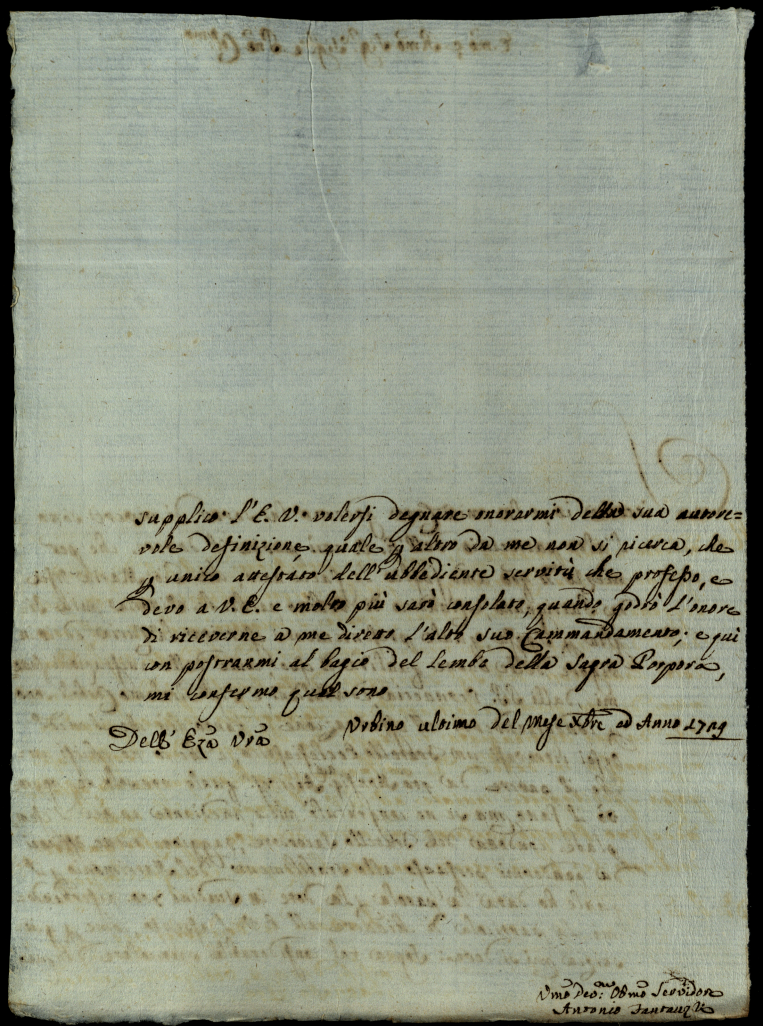 supplico l'E. V. volersi degnare onorarmi della sua autore=
vole definizione, quale p altro da me non si ricerca, che
p unico attestato dell'ubbediente servitù che professo, e
devo a V. E. e molto più sarò consolato, quando godrò l'onore
di riceverne à me diretto l'alto suo Cammandamento; e quì
con postrarmi al bagio del lembo della Sagra Porpora,
mi confermo qual sono
Urbino ultimo del mese Xbre ad Anno
Dell' Eza Vra
Umo Devmo Obmo Servidore
Antonio